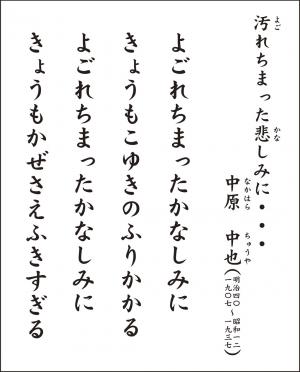 汚れちまった悲しみに・・・
よご
かな
中原 中也(明治四〇~昭和一二 一九〇七~一九三七)
なかはら
ちゅうや
よごれちまったかなしみに
きょうもこゆきのふりかかる
よごれちまったかなしみに
きょうもかぜさえふきすぎる